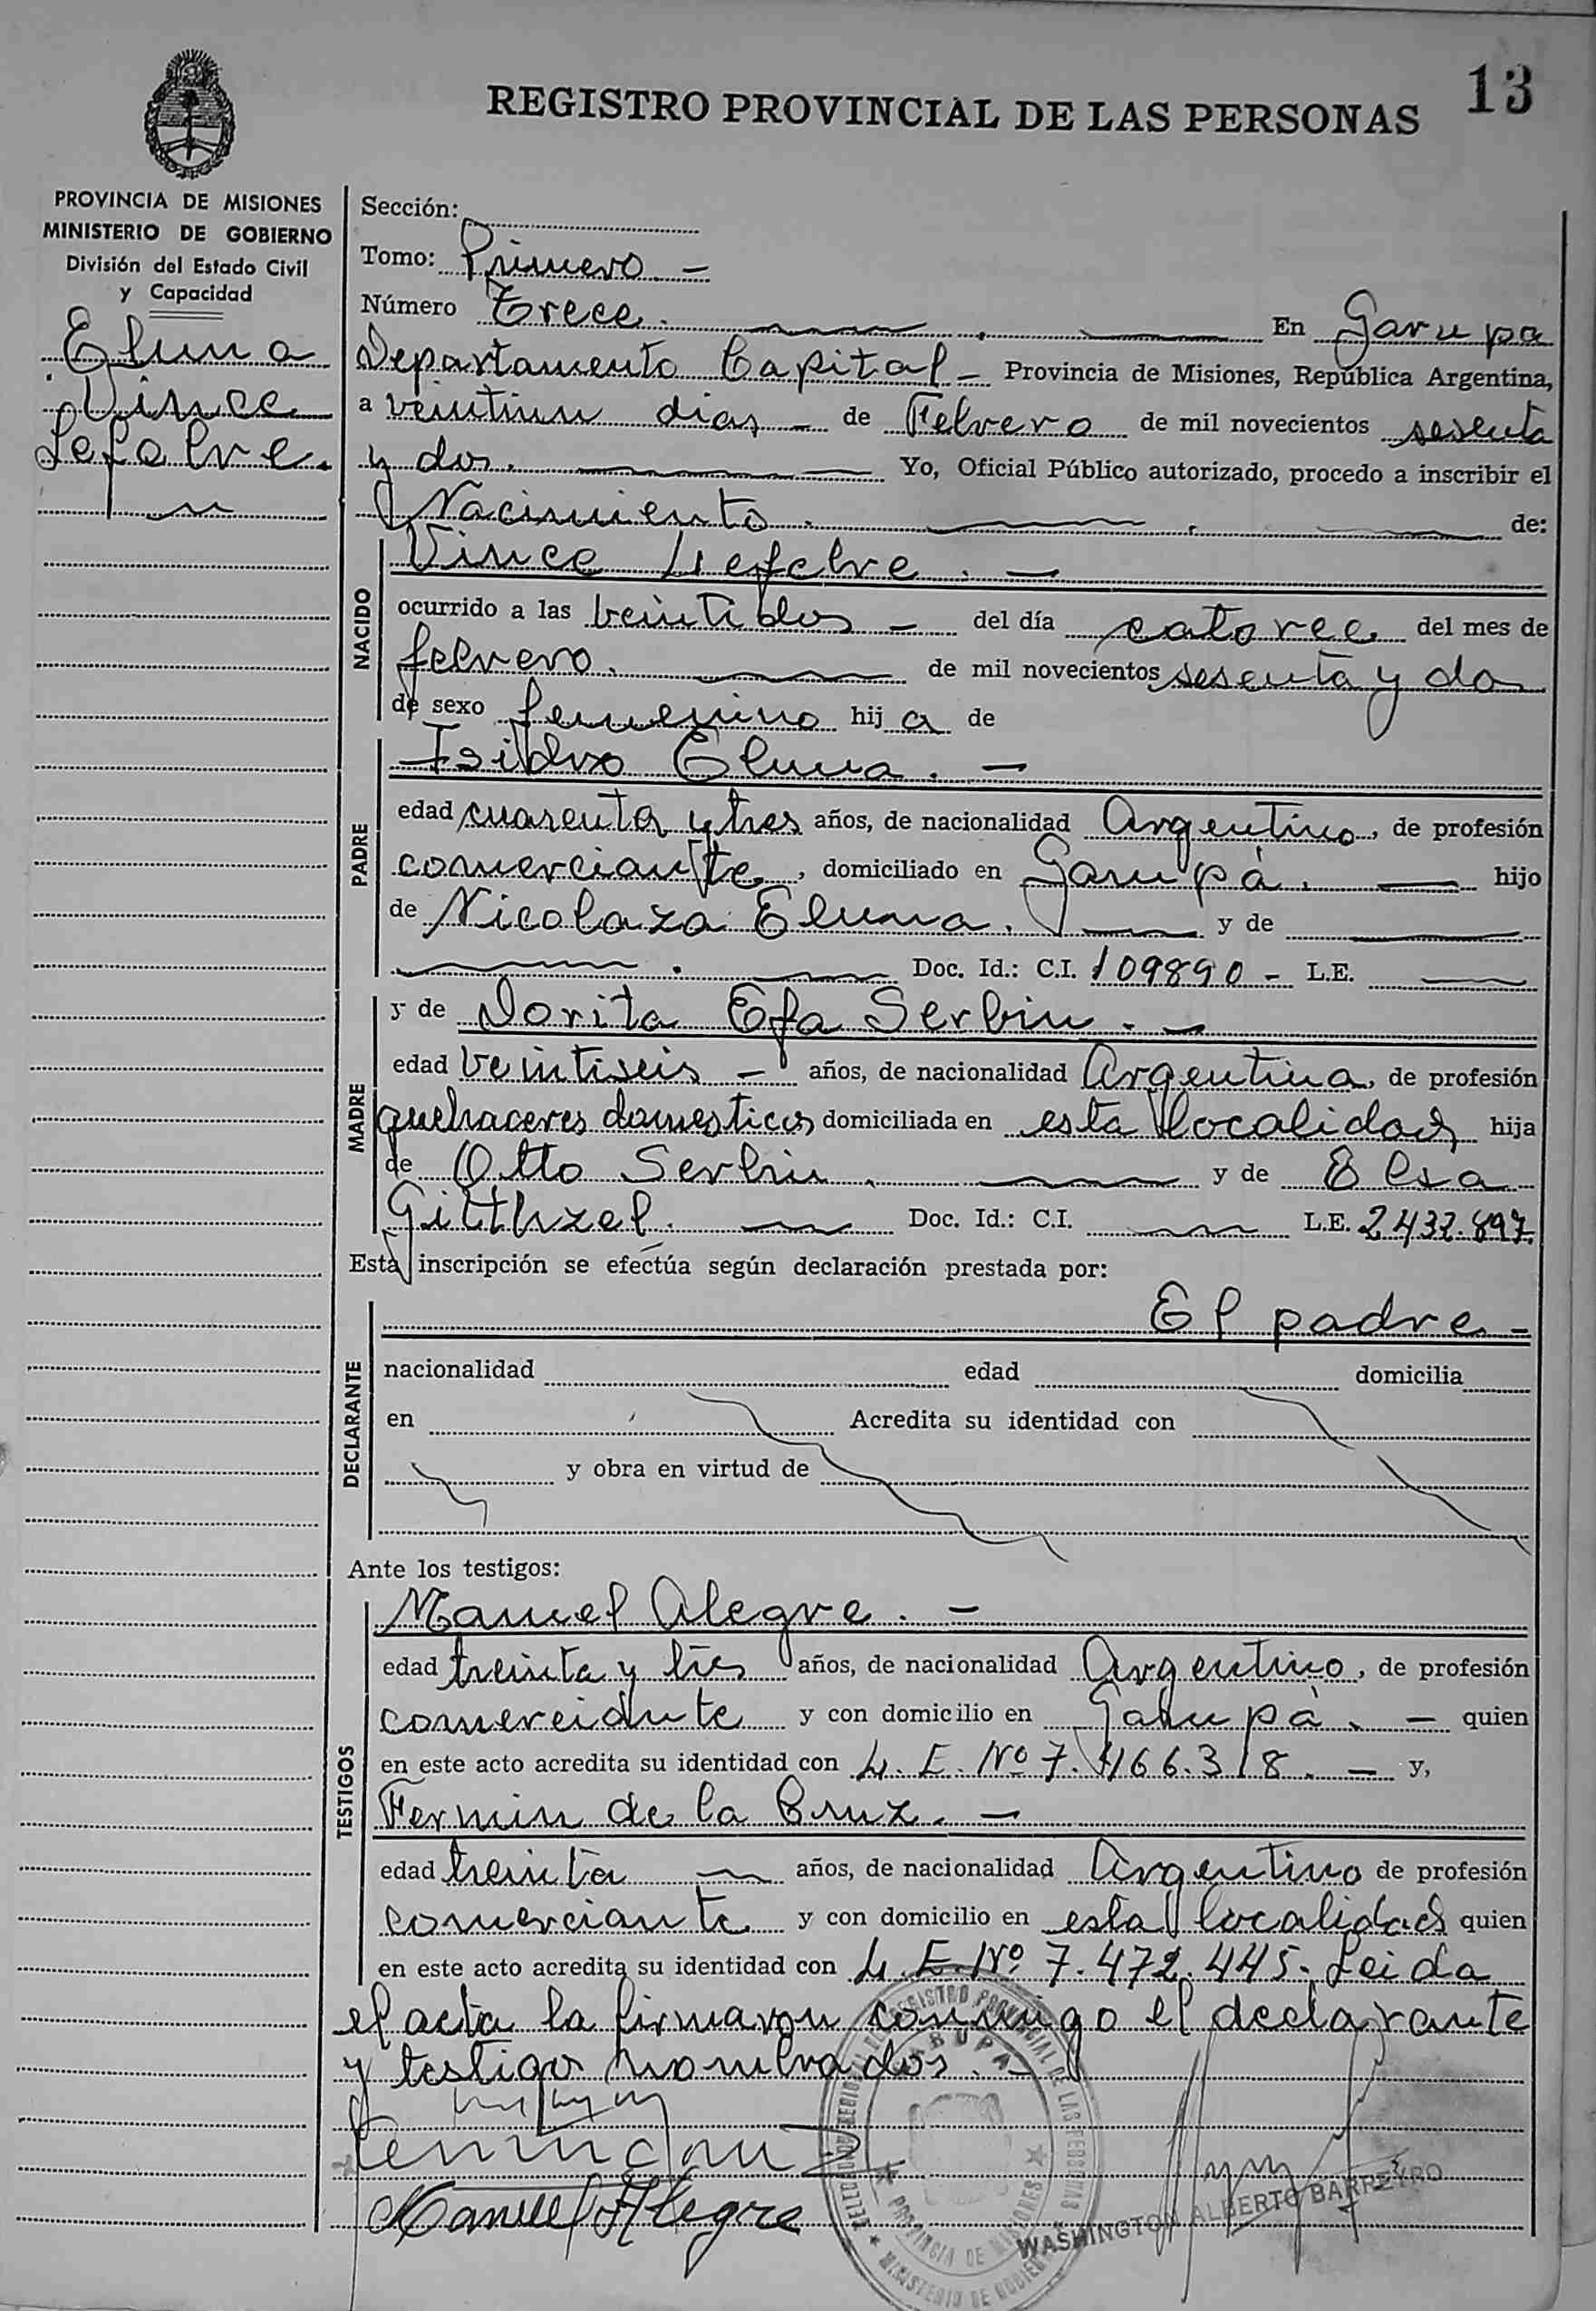 13
REGISTRO PROVINCIAL DE LAS PERSONAS
PROVINCIA DE MISIONES
MINISTERIO DE GOBIERNO
División del Estado Civil
y Capacidad
Elma
Vince
Lefebre.
Sección:
Tomo: Primero -
Número Trece. En Garupa
Departamento Capital - Provincia de Misiones, República Argentina,
a veintiun dias - de Febrero de mil novecientos sesenta
y dos. Yo, Oficial Público autorizado, procedo a inscribir el
Nacimiento. de:
NACIDO
Vince Lefebre. -
ocurrido a las veintidos - del día catorce del mes de
febrero. de mil novecientos sesenta y dos
de sexo femenino hija de
PADRE
Isidro Elma. -
edad cuarenta y tres años, de nacionalidad Argentino, de profesión
comerciante, domiciliado en Garupá. hijo
de Nicolaza Elma. y de
Doc. Id.: C.I. 109890 - L.E.
MADRE
y de Dorita Efa Serbin. -
edad veintiseis - años, de nacionalidad Argentina, de profesión
quehaceres domesticos domiciliada en esta localidad hija
de Otto Serbin. y de Elsa
Gitthzel. Doc. Id.: C.I. L.E. 2432.897.
Esta inscripción se efectúa según declaración prestada por:
DECLARANTE
El padre -
nacionalidad edad domicilia
en Acredita su identidad con
y obra en virtud de
Ante los testigos:
TESTIGOS
Manuel Alegre. -
edad treinta y tres años, de nacionalidad Argentino, de profesión
comerciante y con domicilio en Garupá. - quien
en este acto acredita su identidad con L. E. Nº 7.466.318. - y,
Fermin de la Cruz. -
edad treinta años, de nacionalidad Argentino de profesión
comerciante y con domicilio en esta localidad quien
en este acto acredita su identidad con L. E. Nº 7.472.445. Leida
el acta la firmaron conmigo el declarante
y testigo nombrados. -
Manuel Alegre
WASHINGTON ALBERTO BARREYRO
REGISTRO PROVINCIAL DE LAS PERSONAS
GARUPA
PROVINCIA DE MISIONES
MINISTERIO DE GOBIERNO